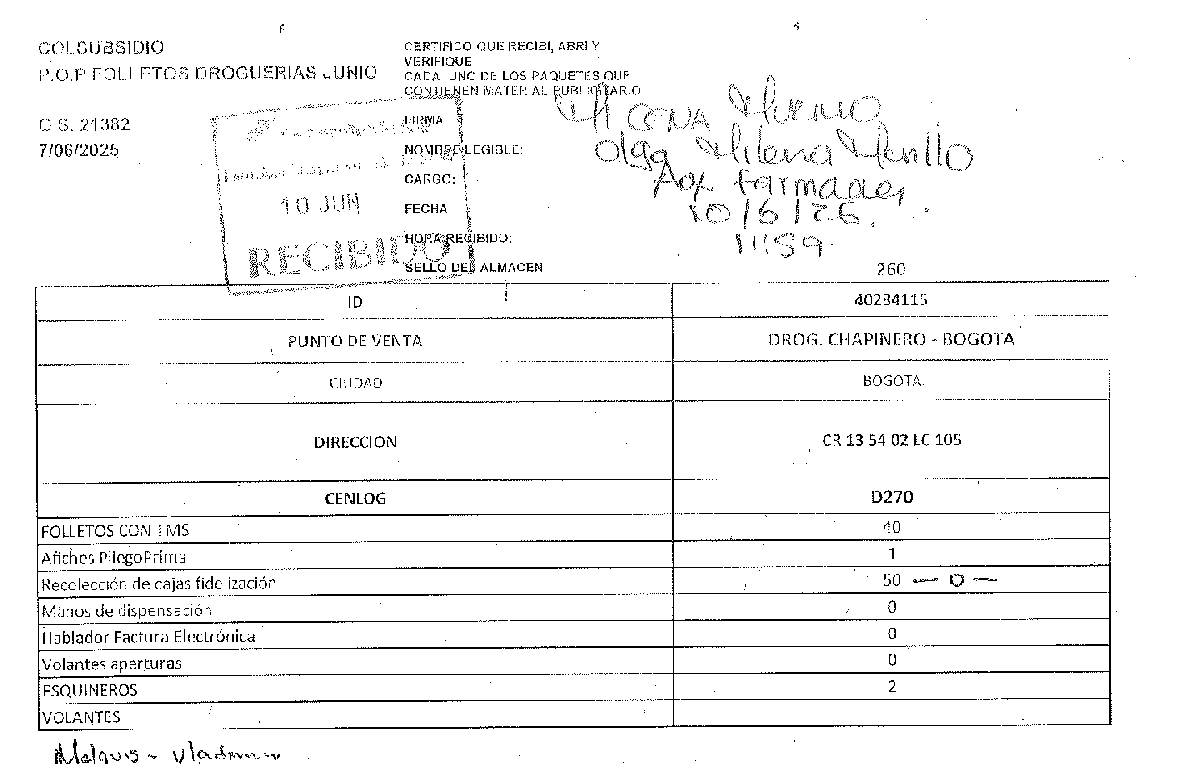 COLSUBSIDIO
P.O.P FOLLETOS DROGUERIAS JUNIO
O.S. 21382
7/06/2025
CERTIFICO QUE RECIBI, ABRI Y
VERIFIQUE
CADA UNO DE LOS PAQUETES QUE
CONTIENEN MATERIAL PUBLICITARIO
FIRMA
NOMBRE LEGIBLE:
Olga Milena Murillo
CARGO:
Aux farmacia
FECHA
10/6/26.
HORA RECIBIDO:
11:59
SELLO DEL ALMACEN
10 JUN
RECIBIDO
260
ID 40284115
PUNTO DE VENTA DROG. CHAPINERO - BOGOTA
CIUDAD BOGOTA
DIRECCION CR 13 54 02 LC 105
CENLOG D270
FOLLETOS CON IMS 40
Afiches PliegoPrima 1
Recolección de cajas fidelización 50 — 0 —
Manos de dispensación 0
Hablador Factura Electrónica 0
Volantes aperturas 0
ESQUINEROS 2
VOLANTES